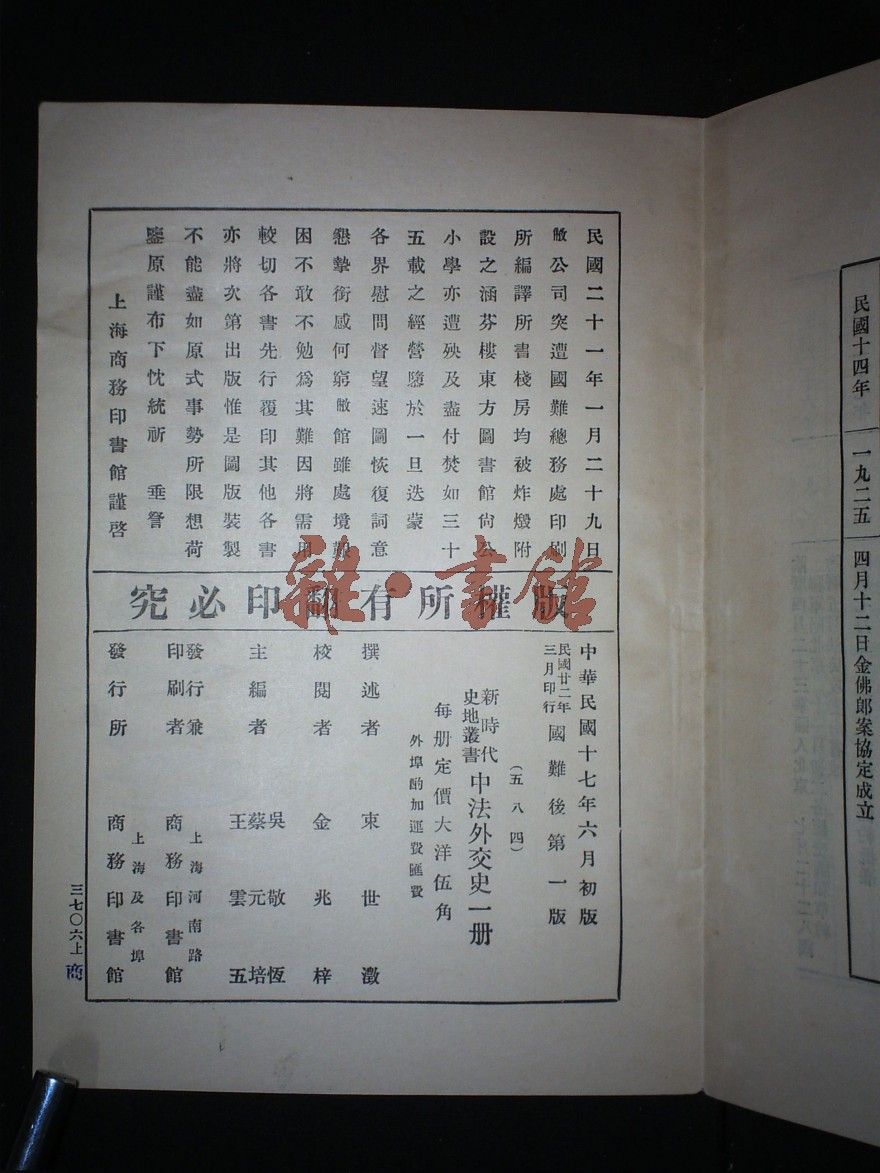 民國二十一年一月二十九日
敝公司突遭國難總務處印刷
所編譯所書棧房均被炸燬附
設之涵芬樓東方圖書館尙公
小學亦遭殃及盡付焚如三十
五載之經營隳於一旦迭蒙
各界慰問督望速圖恢復詞意
懇摯銜感何窮敝館雖處境艱
困不敢不勉爲其難因將需用
較切各書先行覆印其他各書
亦將次第出版惟是圖版裝製
不能盡如原式事勢所限想荷
鑒原謹布下忱統祈 垂詧
上海商務印書館謹啓
版權所有翻印必究
中華民國十七年六月初版
民國廿二年三月印行 國難後第一版
(五八四)
新時代史地叢書 中法外交史一册
每册定價大洋伍角
外埠酌加運費匯費
撰述者 束世澂
校閱者 金兆梓
主編者 吳敬恆 蔡元培 王雲五
發行兼印刷者 上海河南路 商務印書館
發行所 上海及各埠 商務印書館
三七〇六上 商
雜·書館
民國十四年 一九二五 四月十二日金佛郎案協定成立